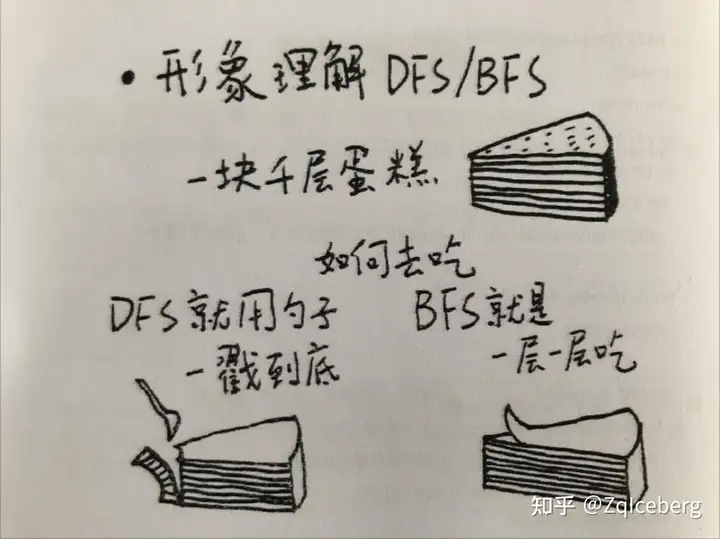 • 形象理解 DFS/BFS
一块千层蛋糕
如何去吃
DFS就用勺子
一戳到底
BFS就是
一层一层吃
知乎 @ZqIceberg